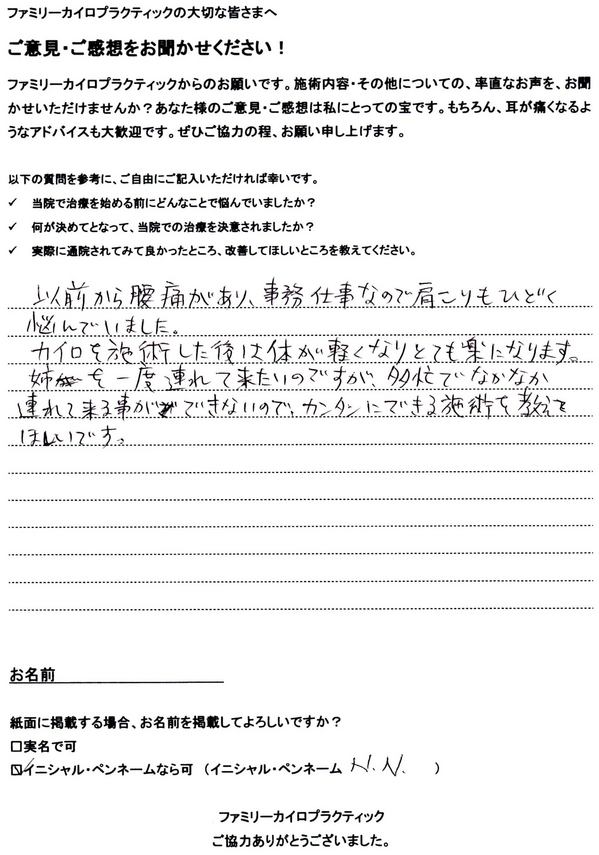 ファミリーカイロプラクティックの大切な皆さまへ
ご意見・ご感想をお聞かせください！
ファミリーカイロプラクティックからのお願いです。施術内容・その他についての、率直なお声を、お聞
かせいただけませんか？あなた様のご意見・ご感想は私にとっての宝です。もちろん、耳が痛くなるよ
うなアドバイスも大歓迎です。ぜひご協力の程、お願い申し上げます。
以下の質問を参考に、ご自由にご記入いただければ幸いです。
✓ 当院で治療を始める前にどんなことで悩んでいましたか？
✓ 何が決めてとなって、当院での治療を決意されましたか？
✓ 実際に通院されてみて良かったところ、改善してほしいところを教えてください。
以前から腰痛があり、事務仕事なので肩こりもひどく
悩んでいました。
カイロを施術した後は体が軽くなりとても楽になります。
姉を一度連れて来たいのですが、多忙でなかなか
連れて来る事ができないので、カンタンにできる施術を教えて
ほしいです。
お名前
紙面に掲載する場合、お名前を掲載してよろしいですか？
□実名で可
☑イニシャル・ペンネームなら可 （イニシャル・ペンネーム N.N. ）
ファミリーカイロプラクティック
ご協力ありがとうございました。